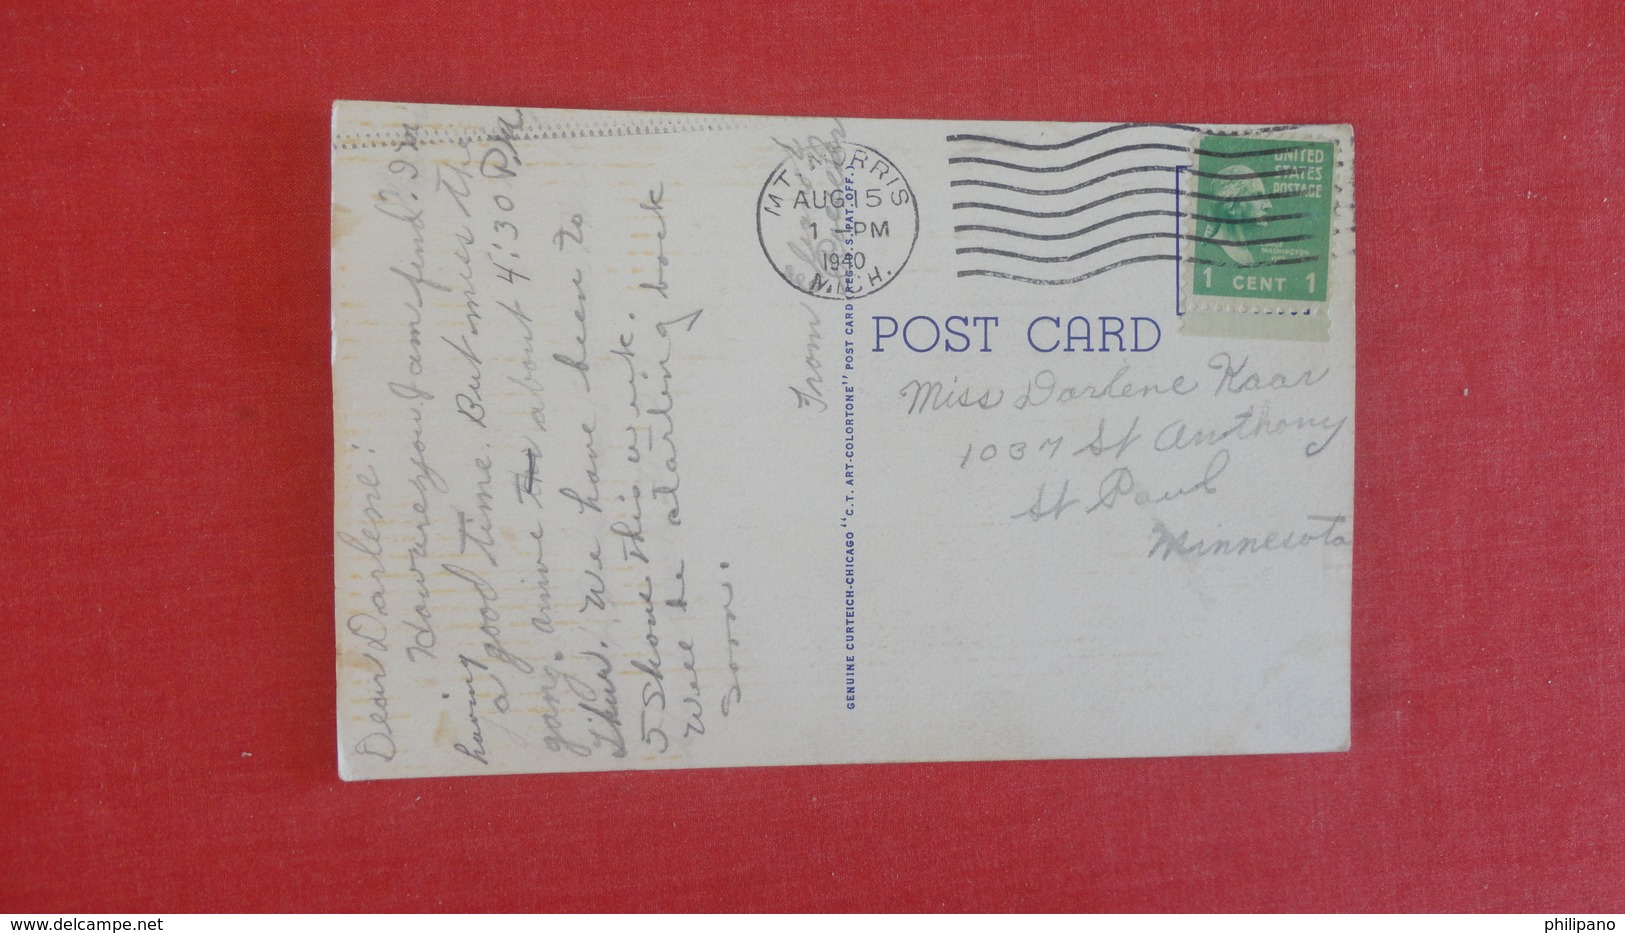 Dear Darlene:
How are you, I am fine. I'm
having
a good time. But miss the
gang. arrive about 4:30 P.M.
Thurs. We have been to
5 Shows this week.
Well be starting back
soon.
From
MT. MORRIS
AUG 15
1 - PM
1940
MICH.
UNITED
STATES
POSTAGE
WASHINGTON
1 CENT 1
POST CARD
Miss Darlene Kaar
1037 St Anthony
St Paul
Minnesota
GENUINE CURTEICH-CHICAGO "C.T. ART-COLORTONE" POST CARD (REG. U.S. PAT. OFF.)
delcampe.net
philipano